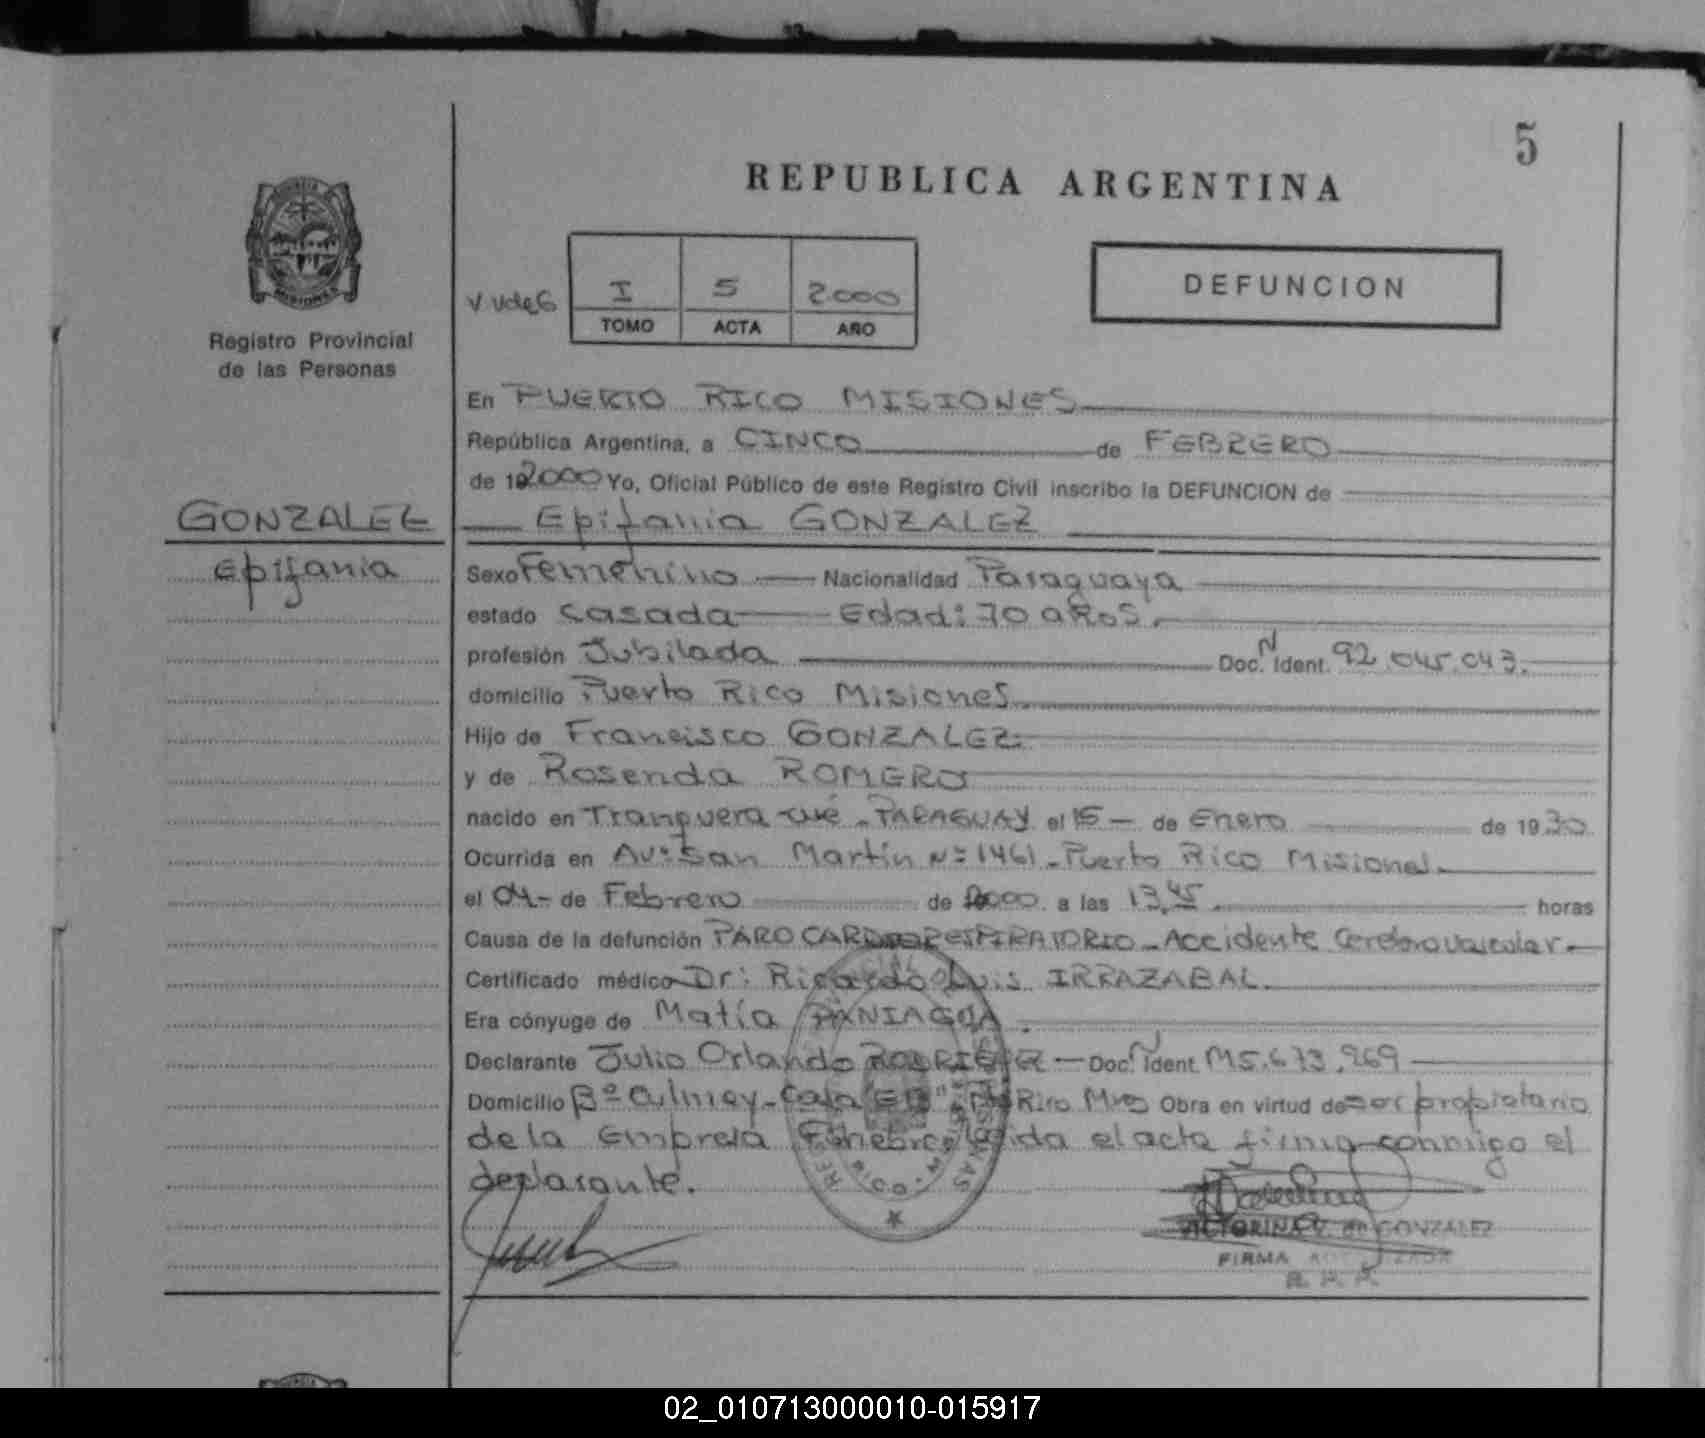 5
REPUBLICA ARGENTINA
MISIONES
Registro Provincial
de las Personas
I 5 2000
TOMO ACTA AÑO
DEFUNCION
En PUERTO RICO MISIONES
República Argentina, a CINCO de FEBRERO
de 2000 Yo, Oficial Público de este Registro Civil inscribo la DEFUNCION de
GONZALEZ
Epifania
Epifania GONZALEZ
Sexo Femenino Nacionalidad Paraguaya
estado casada Edad: 70 años.
profesión Jubilada Doc. N Ident. 92.045.043.
domicilio Puerto Rico Misiones
Hijo de Francisco GONZALEZ
y de Rosenda ROMERO
nacido en Tranquera cué - PARAGUAY el 15 - de Enero de 1930
Ocurrida en Av: San Martín Nº 1461 - Puerto Rico Misiones.
el 04 - de Febrero de 2000 a las 13,45 horas
Causa de la defunción PARO CARDIORESPIRATORIO - Accidente Cerebrovascular.
Certificado médico Dr: Ricardo Luis IRRAZABAL.
Era cónyuge de Matía PANIAGUA.
Declarante Julio Orlando RODRIGUEZ - Doc. N Ident. M5.673.969
Domicilio Bº Culmey - Casa Rico Mnes Obra en virtud de ser propietario
de la Empresa Funebre leída el acta firma conmigo el
declarante.
VICTORINA V. de GONZALEZ
FIRMA
02_010713000010-015917